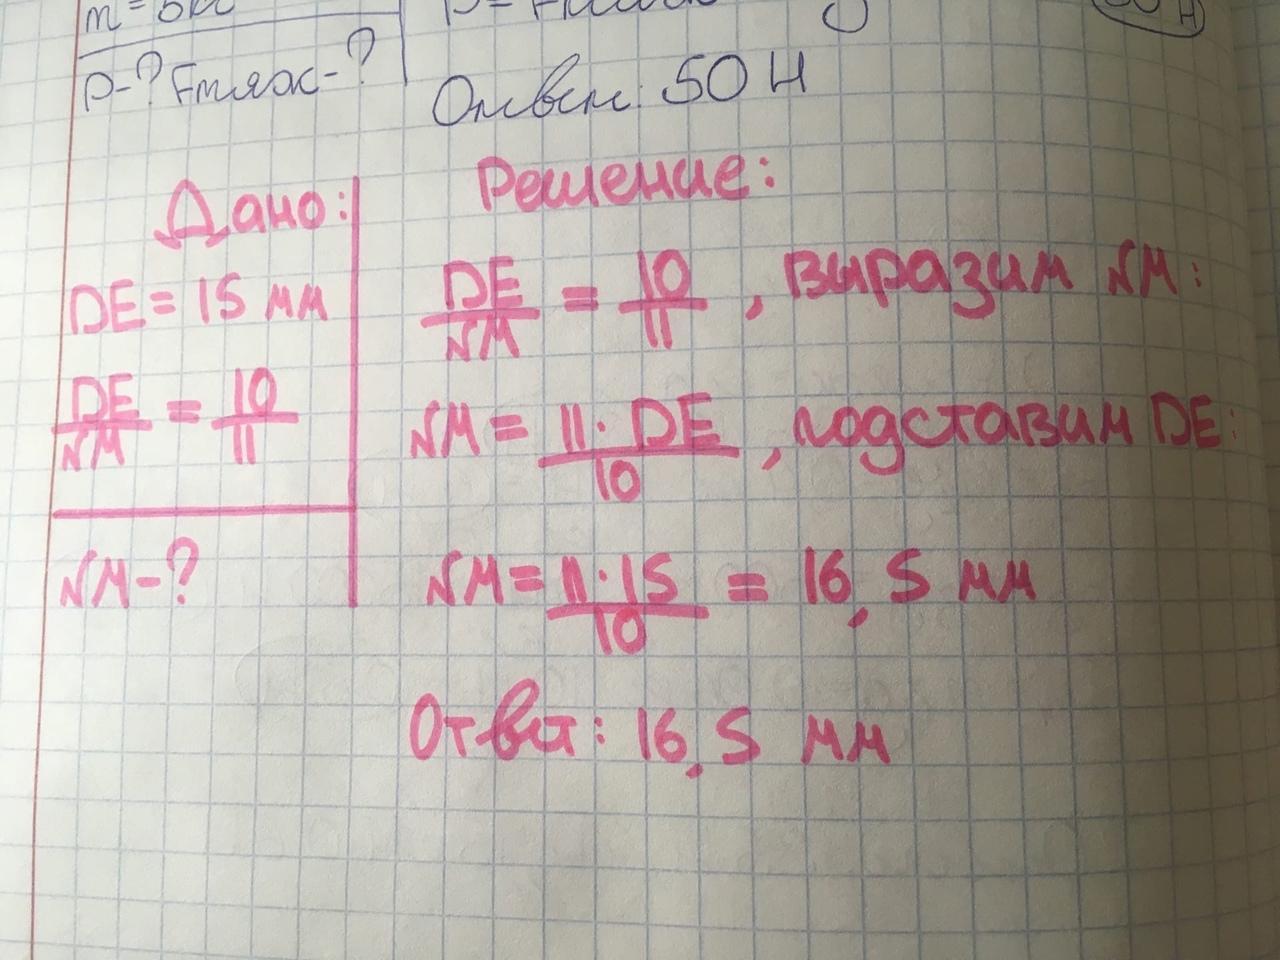 P-? Fтяж-?
Ответ: 50 Н
Дано:
DE = 15 мм
DE/NM = 10/11
NM-?
Решение:
DE/NM = 10/11, выразим NM:
NM = 11·DE/10, подставим DE:
NM = 11·15/10 = 16,5 мм
Ответ: 16,5 мм